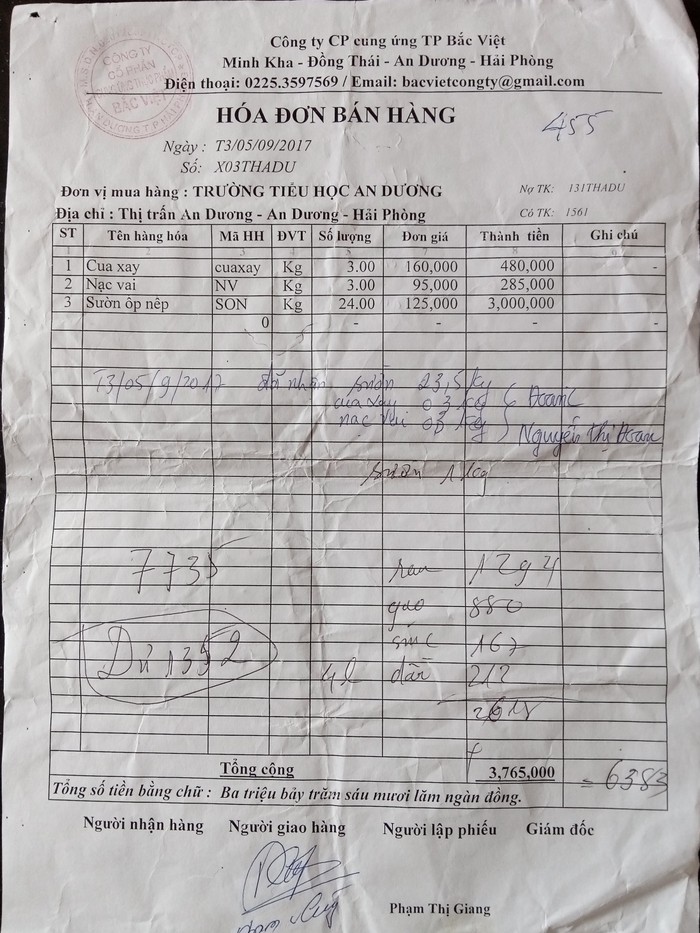 CÔNG TY
CỔ PHẦN
BẮC VIỆT
Công ty CP cung ứng TP Bắc Việt
Minh Kha - Đồng Thái - An Dương - Hải Phòng
Điện thoại: 0225.3597569 / Email: bacvietcongty@gmail.com
HÓA ĐƠN BÁN HÀNG
455
Ngày : T3/05/09/2017
Số: X03THADU
Đơn vị mua hàng : TRƯỜNG TIỂU HỌC AN DƯƠNG Nợ TK: 131THADU
Địa chỉ : Thị trấn An Dương - An Dương - Hải Phòng Có TK: 1561
ST Tên hàng hóa Mã HH ĐVT Số lượng Đơn giá Thành tiền Ghi chú
1 Cua xay cuaxay Kg 3.00 160,000 480,000 -
2 Nạc vai NV Kg 3.00 95,000 285,000
3 Sườn ốp nếp SON Kg 24.00 125,000 3,000,000
0 - - - -
T3/05/9/2017 đã nhận sườn 23,5 kg
cua xay 03 kg Hoan
nạc vai 03 kg Nguyễn Thị Hoan
sườn 1 kg
7735 rau 1294
gạo 880
167
Dư 1352 4l dầu 212
2618
Tổng cộng 3,765,000 = 6383
Tổng số tiền bằng chữ : Ba triệu bảy trăm sáu mươi lăm ngàn đồng.
Người nhận hàng Người giao hàng Người lập phiếu Giám đốc
Phạm Thị Giang